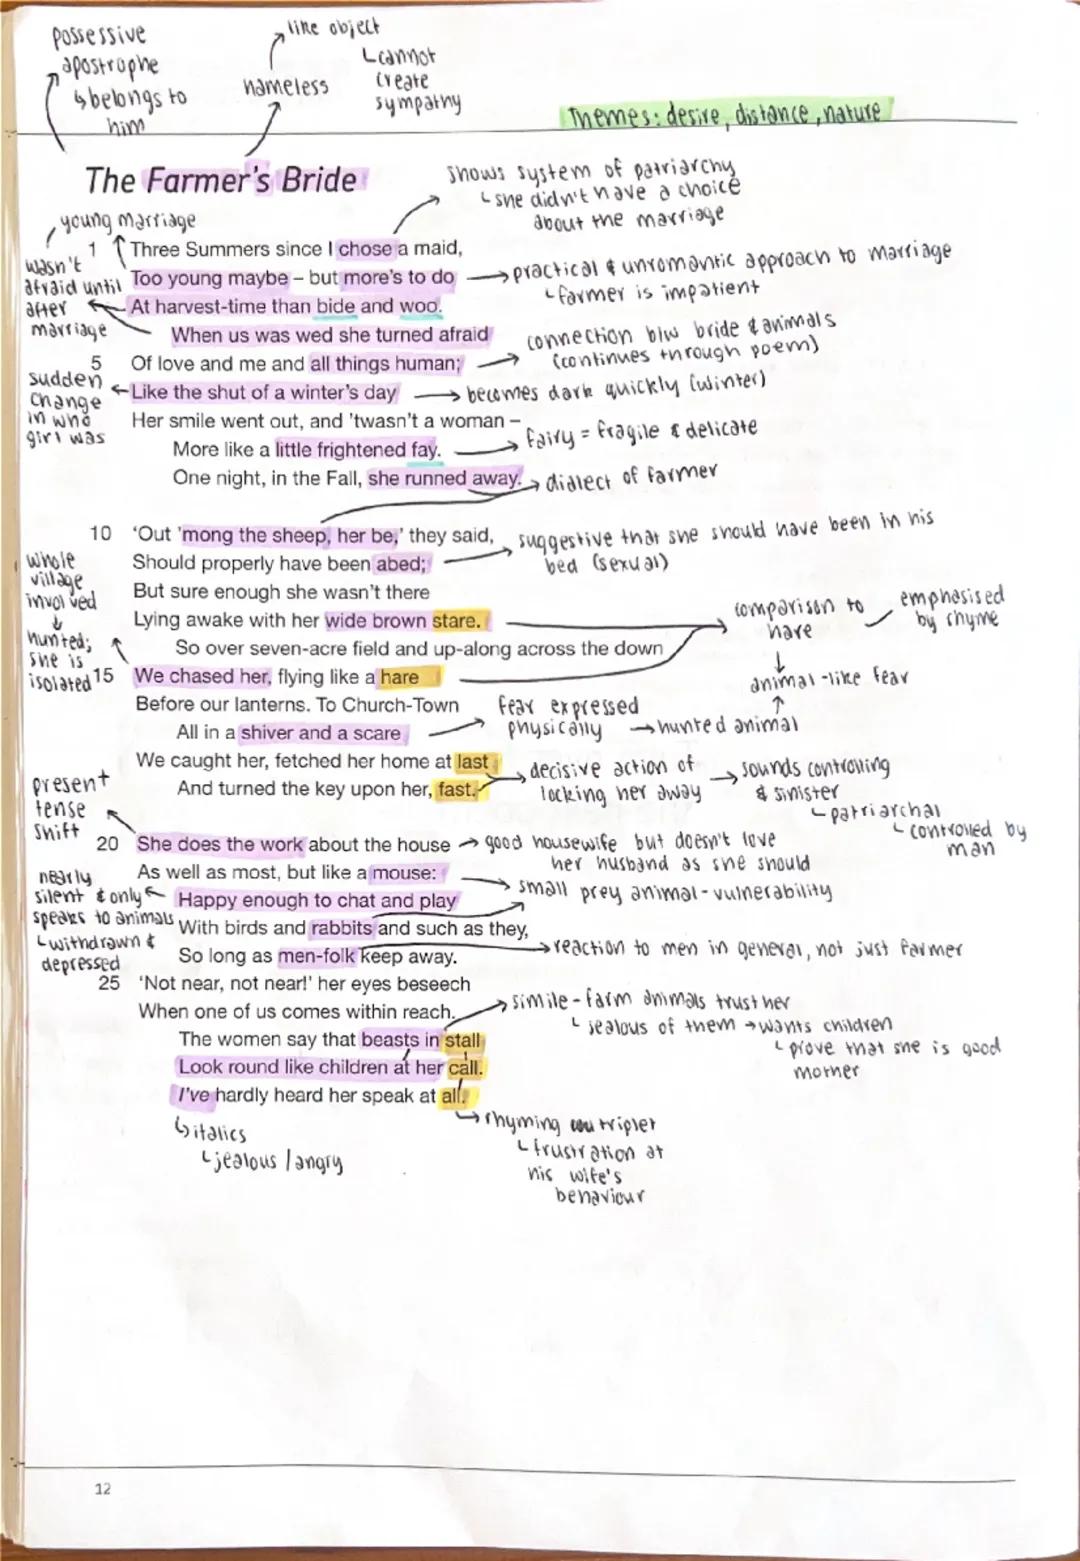 possessive
apostrophe
↳belongs to
him
nameless
like object
└cannot
create
sympathy
Themes: desire, distance, nature
The Farmer's Bride
shows system of patriarchy
└she didn't have a choice
about the marriage
young marriage
wasn't
afraid until
after
marriage
1 Three Summers since I chose a maid,
Too young maybe – but more's to do
→practical & unromantic approach to marriage
└farmer is impatient
At harvest-time than bide and woo.
When us was wed she turned afraid
connection b/w bride & animals
(continues through poem)
5 Of love and me and all things human;
sudden
change
in who
girl was
Like the shut of a winter's day
→becomes dark quickly (winter)
Her smile went out, and 'twasn't a woman –
More like a little frightened fay.
fairy = fragile & delicate
One night, in the Fall, she runned away.
dialect of farmer
10 'Out 'mong the sheep, her be,' they said,
suggestive that she should have been in his
bed (sexual)
Should properly have been abed;
whole
village
involved
↓
hunted;
she is
isolated
But sure enough she wasn't there
Lying awake with her wide brown stare.
comparison to
hare
emphasised
by rhyme
↓
animal-like fear
↑
So over seven-acre field and up-along across the down
15 We chased her, flying like a hare
Before our lanterns. To Church-Town
fear expressed
physically →hunted animal
All in a shiver and a scare
We caught her, fetched her home at last
decisive action of
locking her away
→sounds controlling
& sinister
└patriarchal
└controlled by
man
And turned the key upon her, fast.
present
tense
shift
20 She does the work about the house
→good housewife but doesn't love
her husband as she should
As well as most, but like a mouse:
small prey animal-vulnerability
nearly
silent & only
speaks to animals
└withdrawn &
depressed
Happy enough to chat and play
With birds and rabbits and such as they,
So long as men-folk keep away.
→reaction to men in general, not just farmer
25 'Not near, not near!' her eyes beseech
When one of us comes within reach.
simile-farm animals trust her
└jealous of them →wants children
└prove that she is good
mother
The women say that beasts in stall
Look round like children at her call.
I've hardly heard her speak at all.
↳italics
└jealous/angry
→rhyming triplet
└frustration at
his wife's
behaviour
12